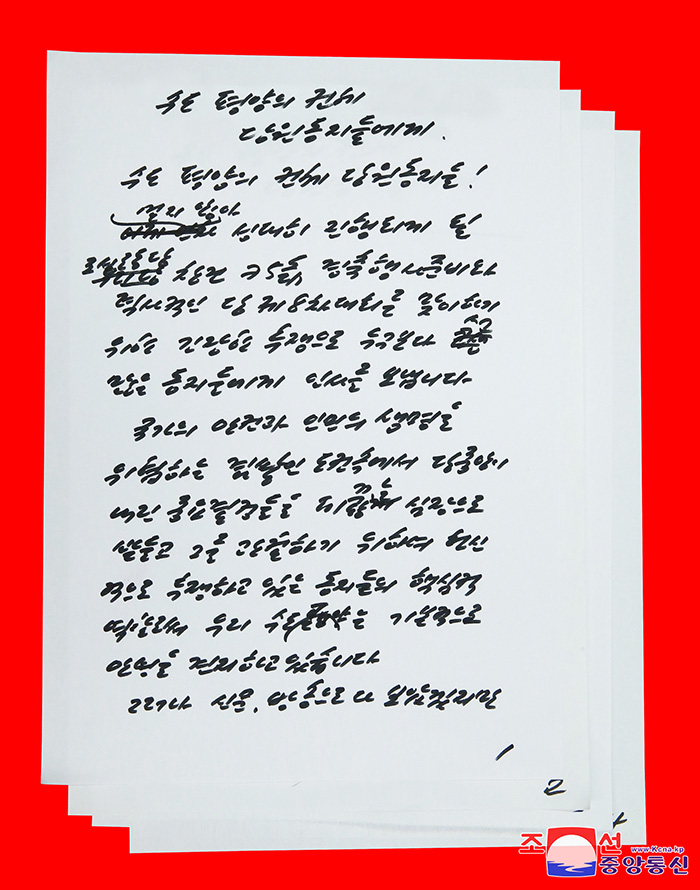 수도 평양의 전체
당원동지들에게.
수도 평양의 전체 당원동지들!
멀지 않아
성대히 진행되게 될
조선로동당
창건 75돐 경축행사준비와
력사적인 당 제8차대회를 맞이하기
위한 긴장한 투쟁으로 누구보다 수고
많은 동지들에게 인사를 보냅니다.
국가의 안전과 인민의 생명을
위협하는 겹쌓인 도전속에서 당중앙이
내린 중요결정들을 피끓는 심장으로
받들고 그를 관철하기 위하여 헌신
적으로 투쟁하고 있는 동지들의 핵심적
역할로써 우리 수도 평양은 기본적으로
안정을 견지하고 있습니다
그러나 신문, 방송으로 다 보았겠지만
1
2
조선
www.Kcna.kp
중앙통신